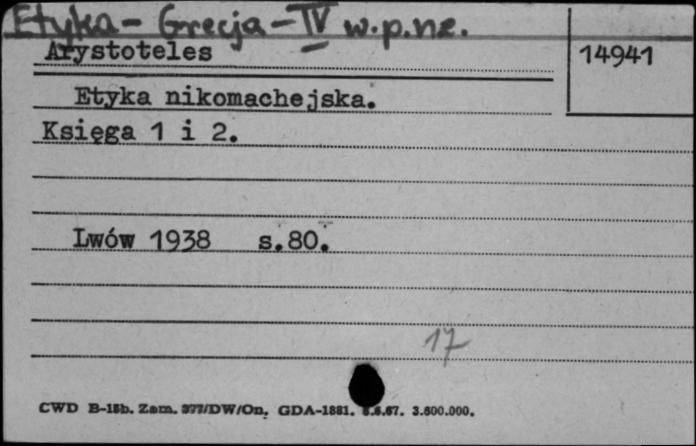 Etyka - Grecja - IV w.p.ne.
Arystoteles
14941
Etyka nikomachejska.
Księga 1 i 2.
Lwów 1938 s.80.
17
CWD B-15b. Zam. 377/DW/On. GDA-1881. 6.67. 3.600.000.